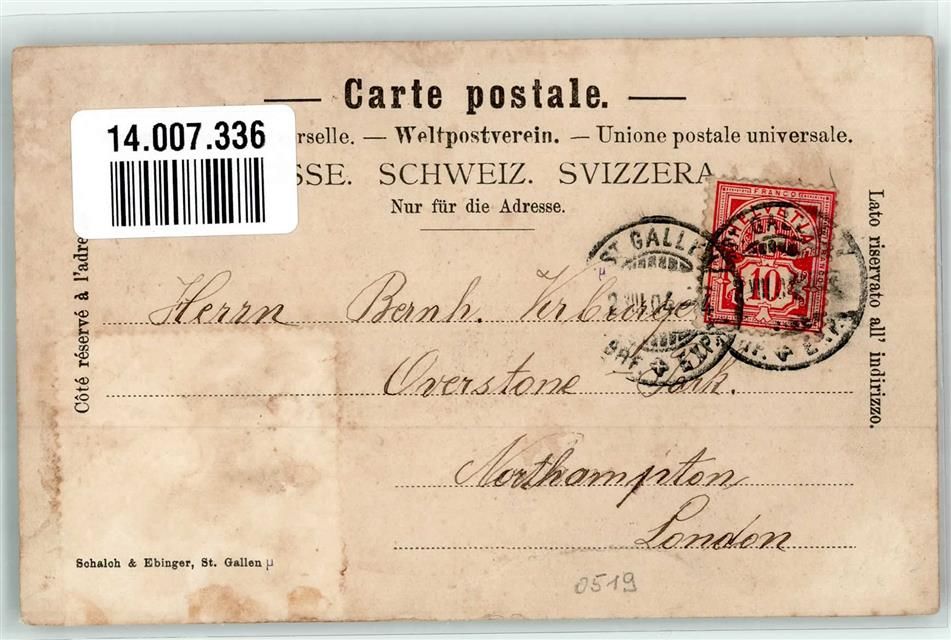 Carte postale.
14.007.336
rselle. — Weltpostverein. — Unione postale universale.
SSE. SCHWEIZ. SVIZZERA
Nur für die Adresse.
Côté réservé à l'adre
Lato riservato all' indirizzo.
FRANCO
HELVETIA
10
ST GALLEN
BRF. EXP.
Herrn Bernh.
Overstone Park.
Northampton
London
Schalch & Ebinger, St. Gallen µ
0519